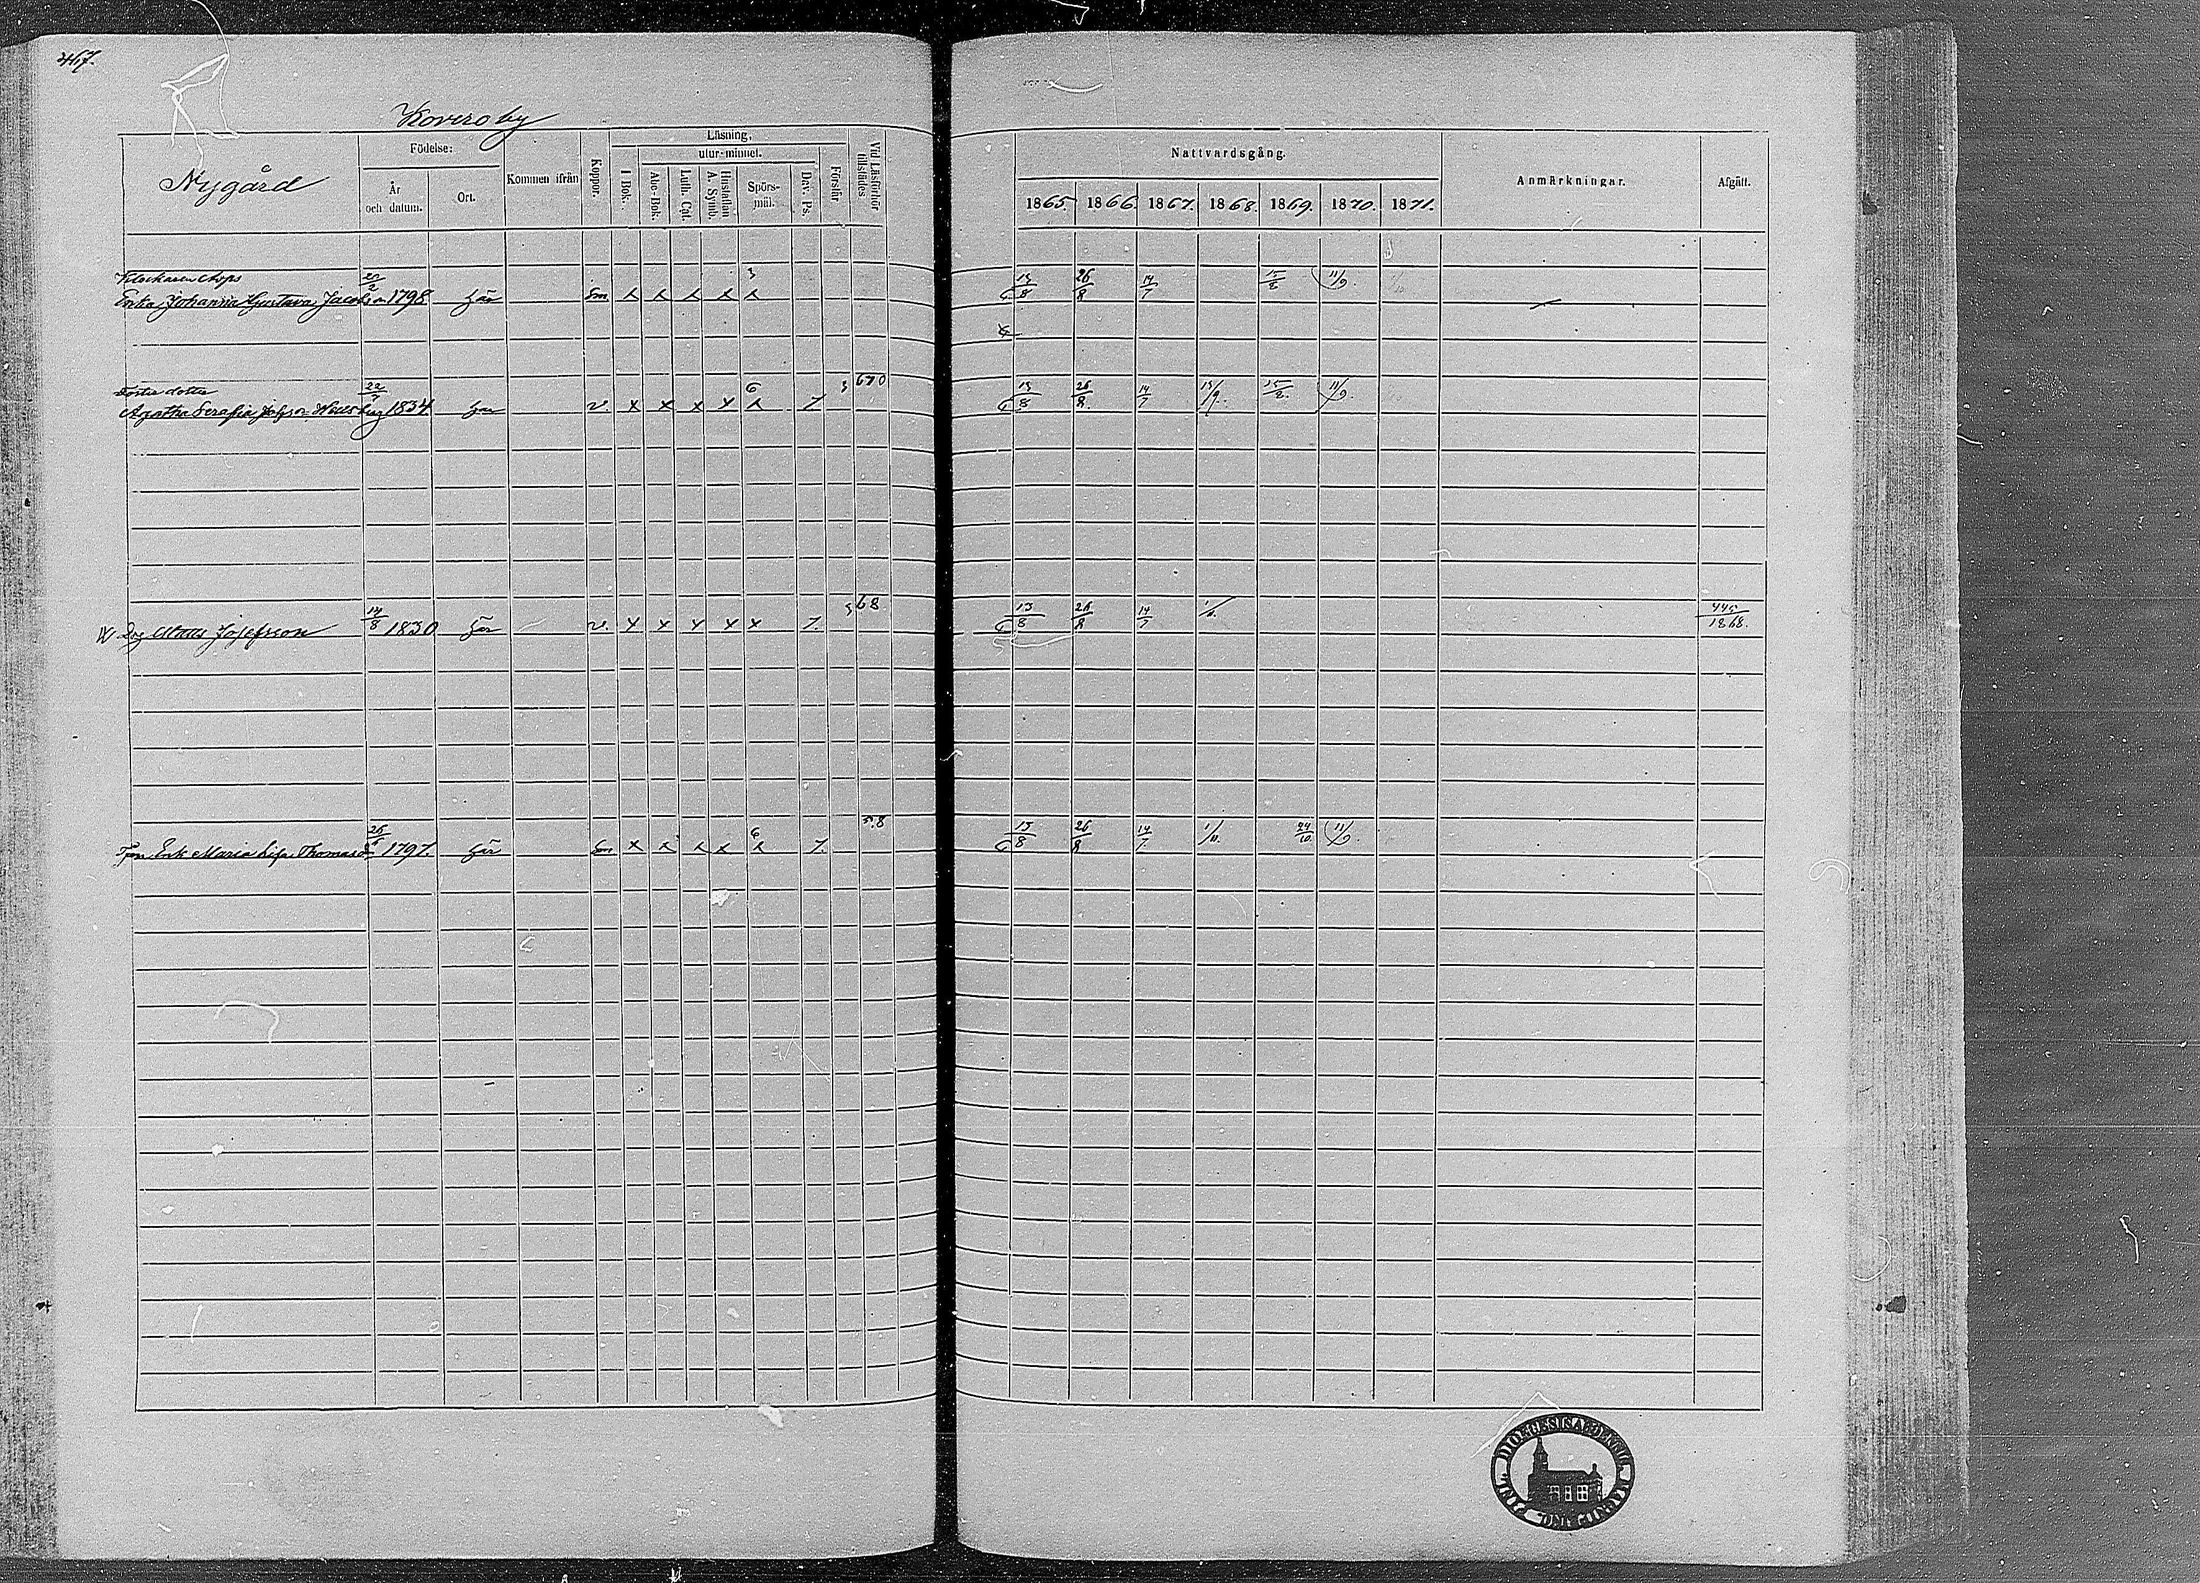 467.
Kovero by
Nygård
Födelse:
År och datum.
Ort.
Kommen ifrån
Koppor.
Läsning,
utur-minnet.
I Bok.
Abc-Bok.
Luth. Cat.
Hustaflan A. Symb.
Spörs-mål.
Dav. Ps.
Förstår
Vid Läsförhör tillstädes
Nattvardsgång.
1865. 1866. 1867. 1868. 1869. 1870. 1871.
Anmärkningar.
Afgått.
Klockaren
3
Enka Johanna Gustava 22/2 1798 här x x x x x 13/8 26/8 14/7 15/8 11/9
Foster dotter
6
Agatha Serafia 22/7 1834 här v. x x x x x 7 13/8 26/8 14/7 15/8 11/9
68
Drg Josefsson 14/8 1830 här v. x x x x x 7. 13/8 26/8 14/7 445/1868.
6
Enk. Maria Lisa Thomasd 1797. här x x x x x 7. 13/8 26/8 14/7 1/11. 24/10 11/9